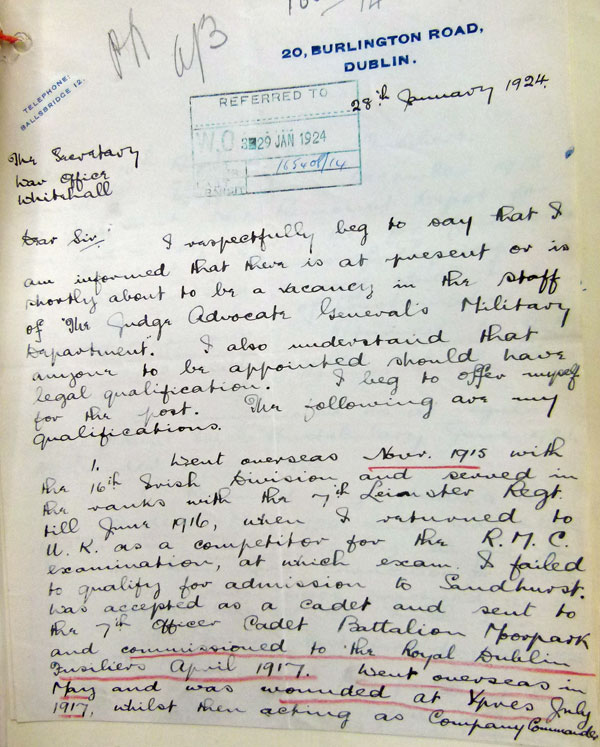 20, BURLINGTON ROAD,
DUBLIN.
TELEPHONE:
BALLSBRIDGE 12.
28th January 1924.
REFERRED TO
W.O 29 JAN 1924
The Secretary
War Office
Whitehall
Dear Sir, I respectfully beg to say that I
am informed that there is at present or is
shortly about to be a vacancy in the staff
of "The Judge Advocate General's Military
Department". I also understand that
anyone to be appointed should have
legal qualification. I beg to offer myself
for the post. The following are my
qualifications.
1. Went overseas Novr. 1915 with
the 16th Irish Division and served in
the ranks with the 7th Leinster Regt.
till June 1916, when I returned to
U.K. as a competitor for the R.M.C.
examination, at which exam. I failed
to qualify for admission to Sandhurst.
Was accepted as a cadet and sent to
the 7th Officer Cadet Battalion Moorpark
and commissioned to the Royal Dublin
Fusiliers April 1917. Went overseas in
May and was wounded at Ypres July
1917, whilst then acting as Company Commander